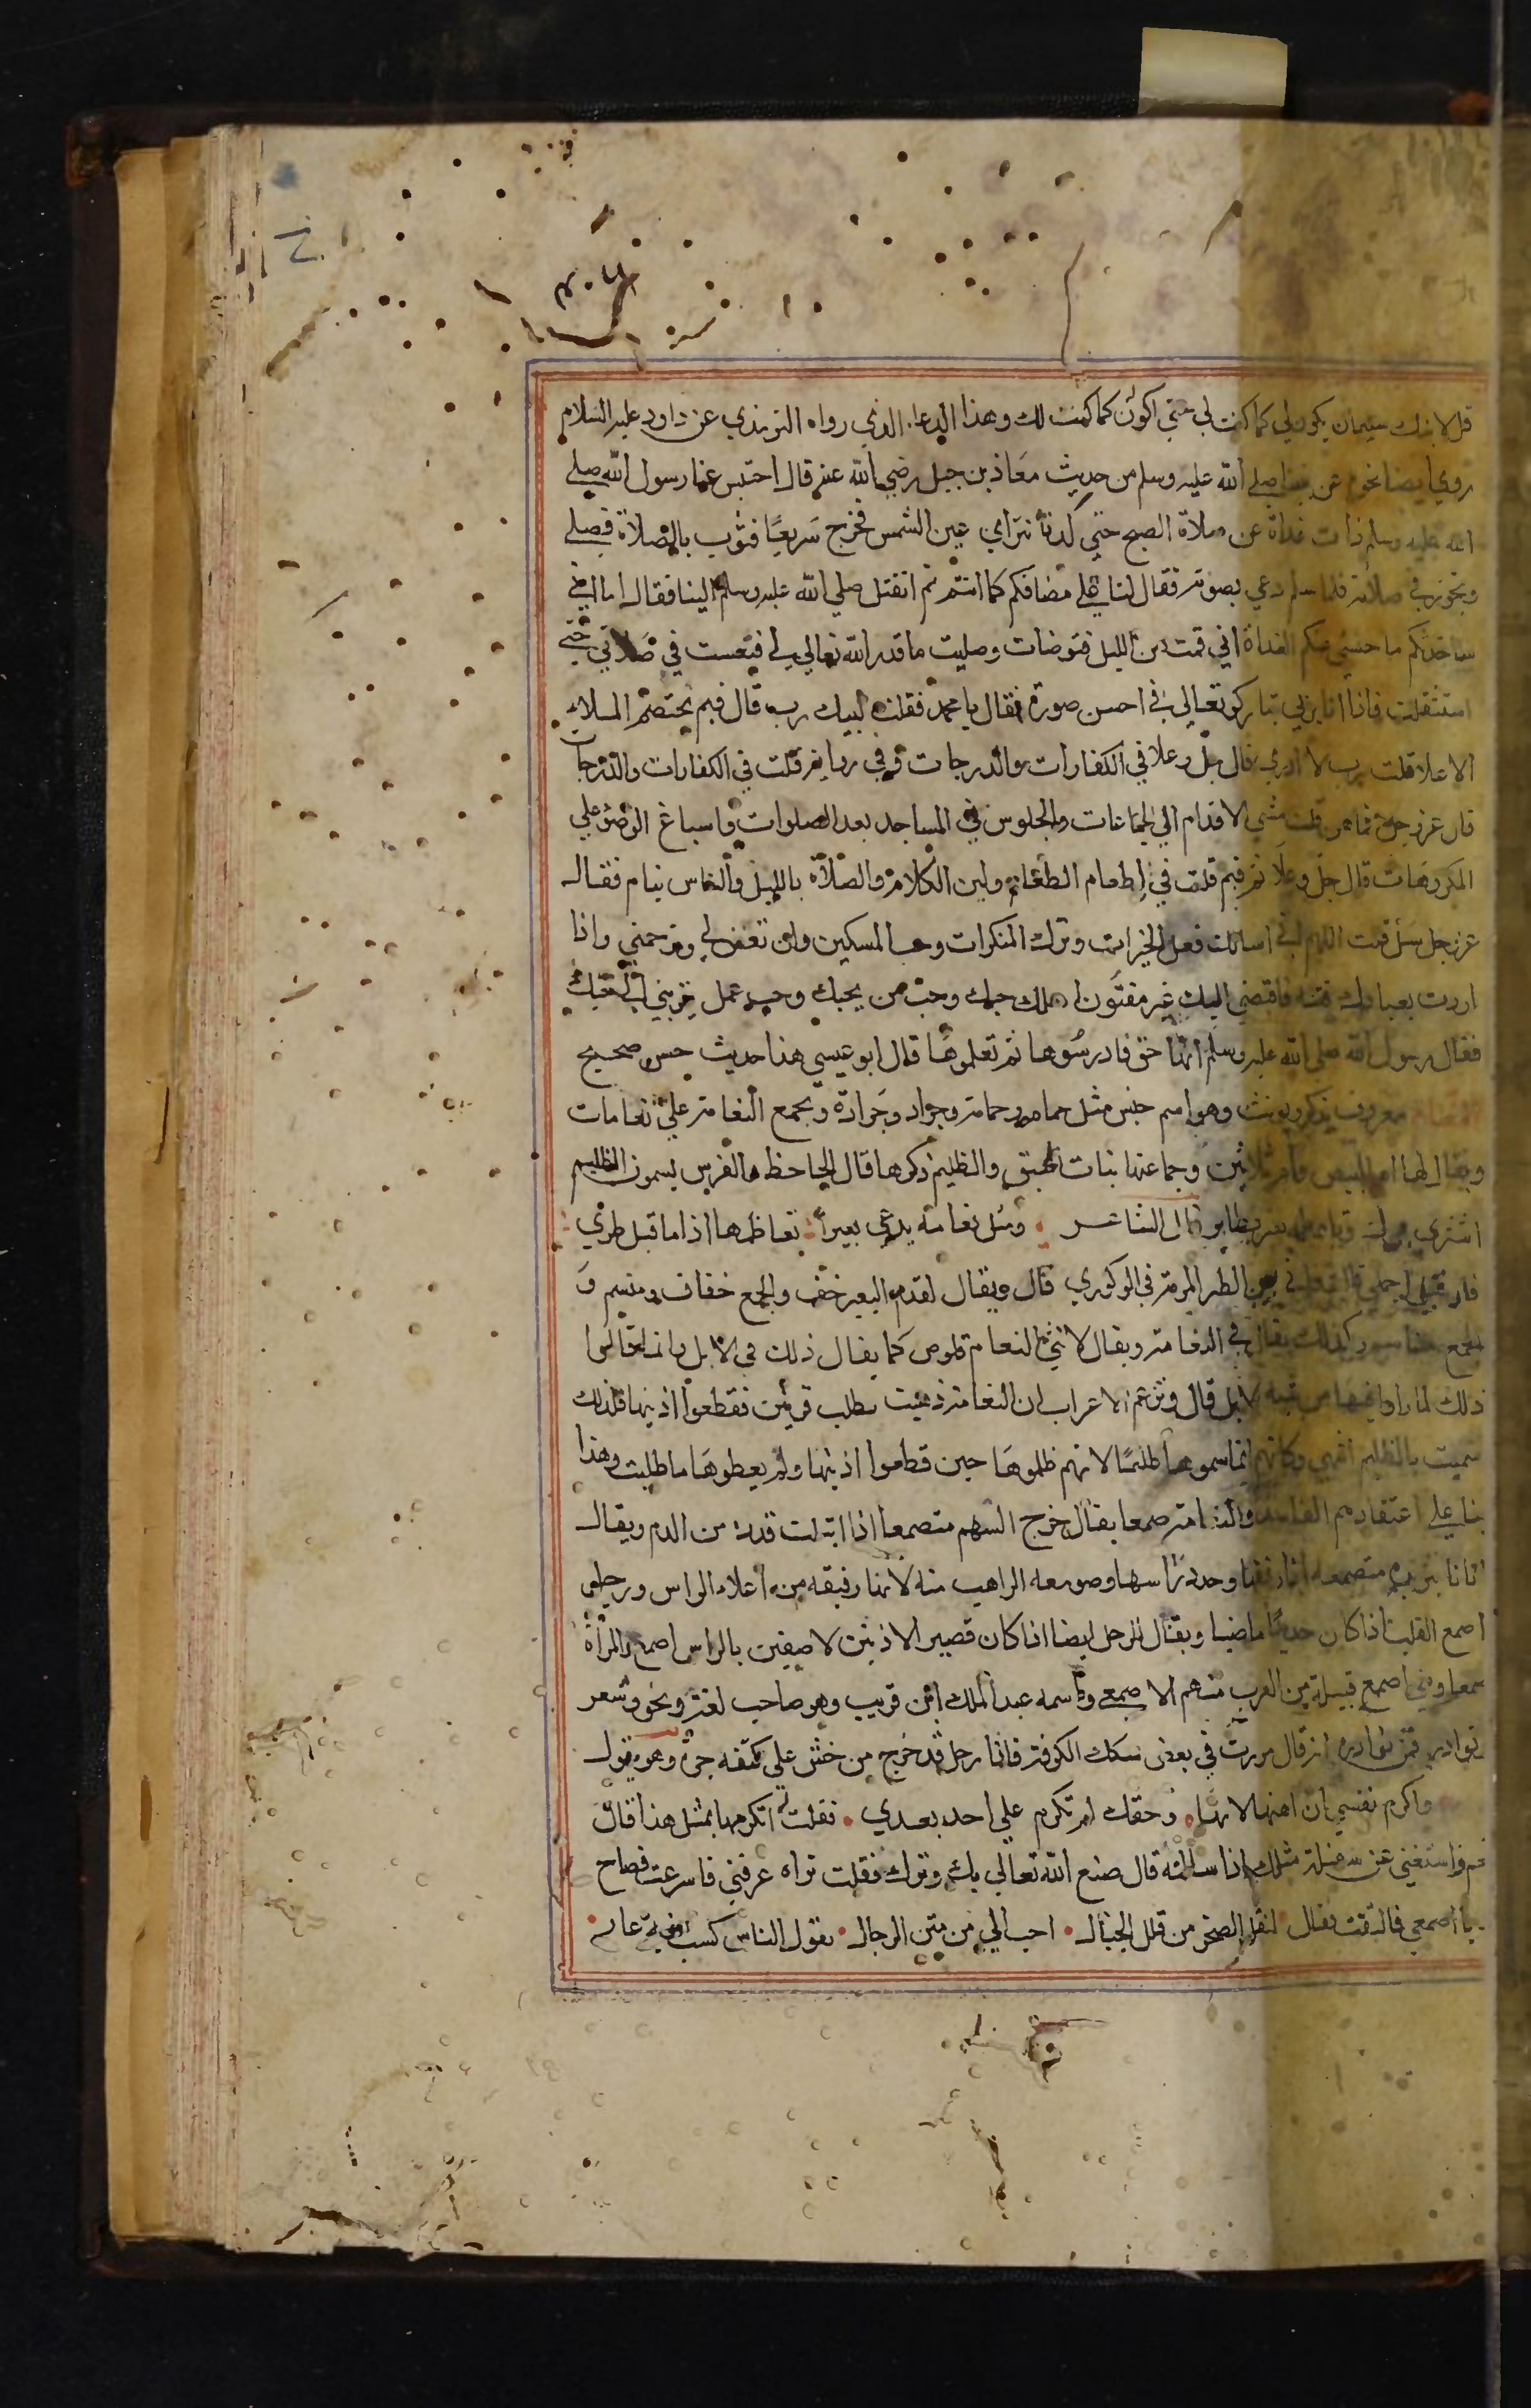 قل لابنك سليمان يكون لي كما كنت لي حتي اكون كما كنت لك وهذا الدعا الذي رواه الترمذي عن داود عليه السلام
روي ايضا نحوه عن نبينا صلي الله عليه وسلم من حديث معاذ بن جبل رضي الله عنه قال احتبس عنا رسول الله صلي
الله عليه وسلم ذات غداة عن صلاة الصبح حتي كدنا نتراي عين الشمس فخرج سريعًا فثوب بالصلاة فصلي
وتجوز في صلاته فلما سلم دعي بصوته فقال لنا علي مصافكم كما انتم ثم انفتل صلي الله عليه وسلم الينا فقال اما اني
ساحدثكم ما حبسني عنكم الغداة اني قمت من الليل فتوضات وصليت ما قدر الله تعالي لي فنعست في صلاتي حتي
استثقلت فاذا انا بربي تبارك وتعالي في احسن صورة فقال يا محمد فقلت لبيك رب قال فيم يختصم الملاء
الاعلا قلت رب لا ادري قال جل وعلا في الكفارات والدرجات وفي رواية قلت في الكفارات والدرجات
قال عز وجل فما هن قلت مشي الاقدام الي الجماعات والجلوس في المساجد بعد الصلوات واسباغ الوضو علي
المكروهات قال جل وعلا ثم فيم قلت في اطعام الطعام ولين الكلام والصلاة بالليل والناس نيام فقال
عز وجل سل قلت اللهم اني اسالك فعل الخيرات وترك المنكرات وحب المسكين وان تغفر لي وترحمني واذا
اردت بعبادك فتنة فاقبضني اليك غير مفتون اسالك حبك وحب من يحبك وحب عمل يقربني الي حبك
فقال رسول الله صلي الله عليه وسلم انها حق فادرسوها ثم تعلموها قال ابو عيسي هذا حديث حسن صحيح
النعام معروف يذكر ويونث وهو اسم جنس مثل حمام وحمامة وجراد وجرادة ويجمع النعامة علي نعامات
ويقال لها ام البيض وام ثلاثين وجماعتها بنات الهيق والظليم ذكرها قال الجاحظ والفرس يسمون الظليم
اشتر مرك وتاويله بعير وطاير قال الشاعر ومثل نعامة يدعي بعيرا تعاظمها اذا ما قيل طيري
فان قيل احملي قالت فاني من الطير المربة في الوكوري قال ويقال لقدم البعير خف والجمع خفاف ومنسم و
الجمع مناسم وكذلك يقال في النعامة ويقال لانثي النعام قلوص كما يقال ذلك في الابل وانما قالوا
ذلك لما راوا فيها من شبه الابل قال وتزعم الاعراب ان النعامة ذهبت تطلب قرنين فقطعوا اذنيها فلذلك
سميت بالظليم انتهي وكانهم انما سموها ظليمًا لانهم ظلموها حين قطعوا اذنيها ولم يعطوها ما طلبت وهذا
بنا علي اعتقادهم الفاسد والنعامة صمعا يقال خرج السهم متصمعا اذا ابتلت قذذه من الدم ويقال
اتانا بثريدة متصمعة اذا رققها وحدد راسها وصومعة الراهب منه لانها رقيقة من اعلاء الراس ورجل
اصمع القلب اذا كان حديدًا ماضيا ويقال للرجل ايضا اذا كان قصير الاذنين لاصقين بالراس اصمع والمراة
صمعا وبني اصمع قبيلة من العرب منهم الاصمعي واسمه عبد الملك ابن قريب وهو صاحب لغة ونحو وشعر
نوادر فمن نوادره انه قال مررت في بعض سكك الكوفة فاذا رجل قد خرج من حش علي كتفه جرة وهو يقول
واكرم نفسي ان اهنها لانها وحقك لم تكرم علي احد بعدي فقلت اتكرمها بمثل هذا قال
نعم واستغني عن سفلة مثلك اذا سالته قال صنع الله تعالي بك وترك فقلت تراه عرفني فاسرعت فصاح
يا اصمعي فالتفت فقال لنقل الصخر من قلل الجبال احب الي من منن الرجال يقول الناس كسب فيه عار